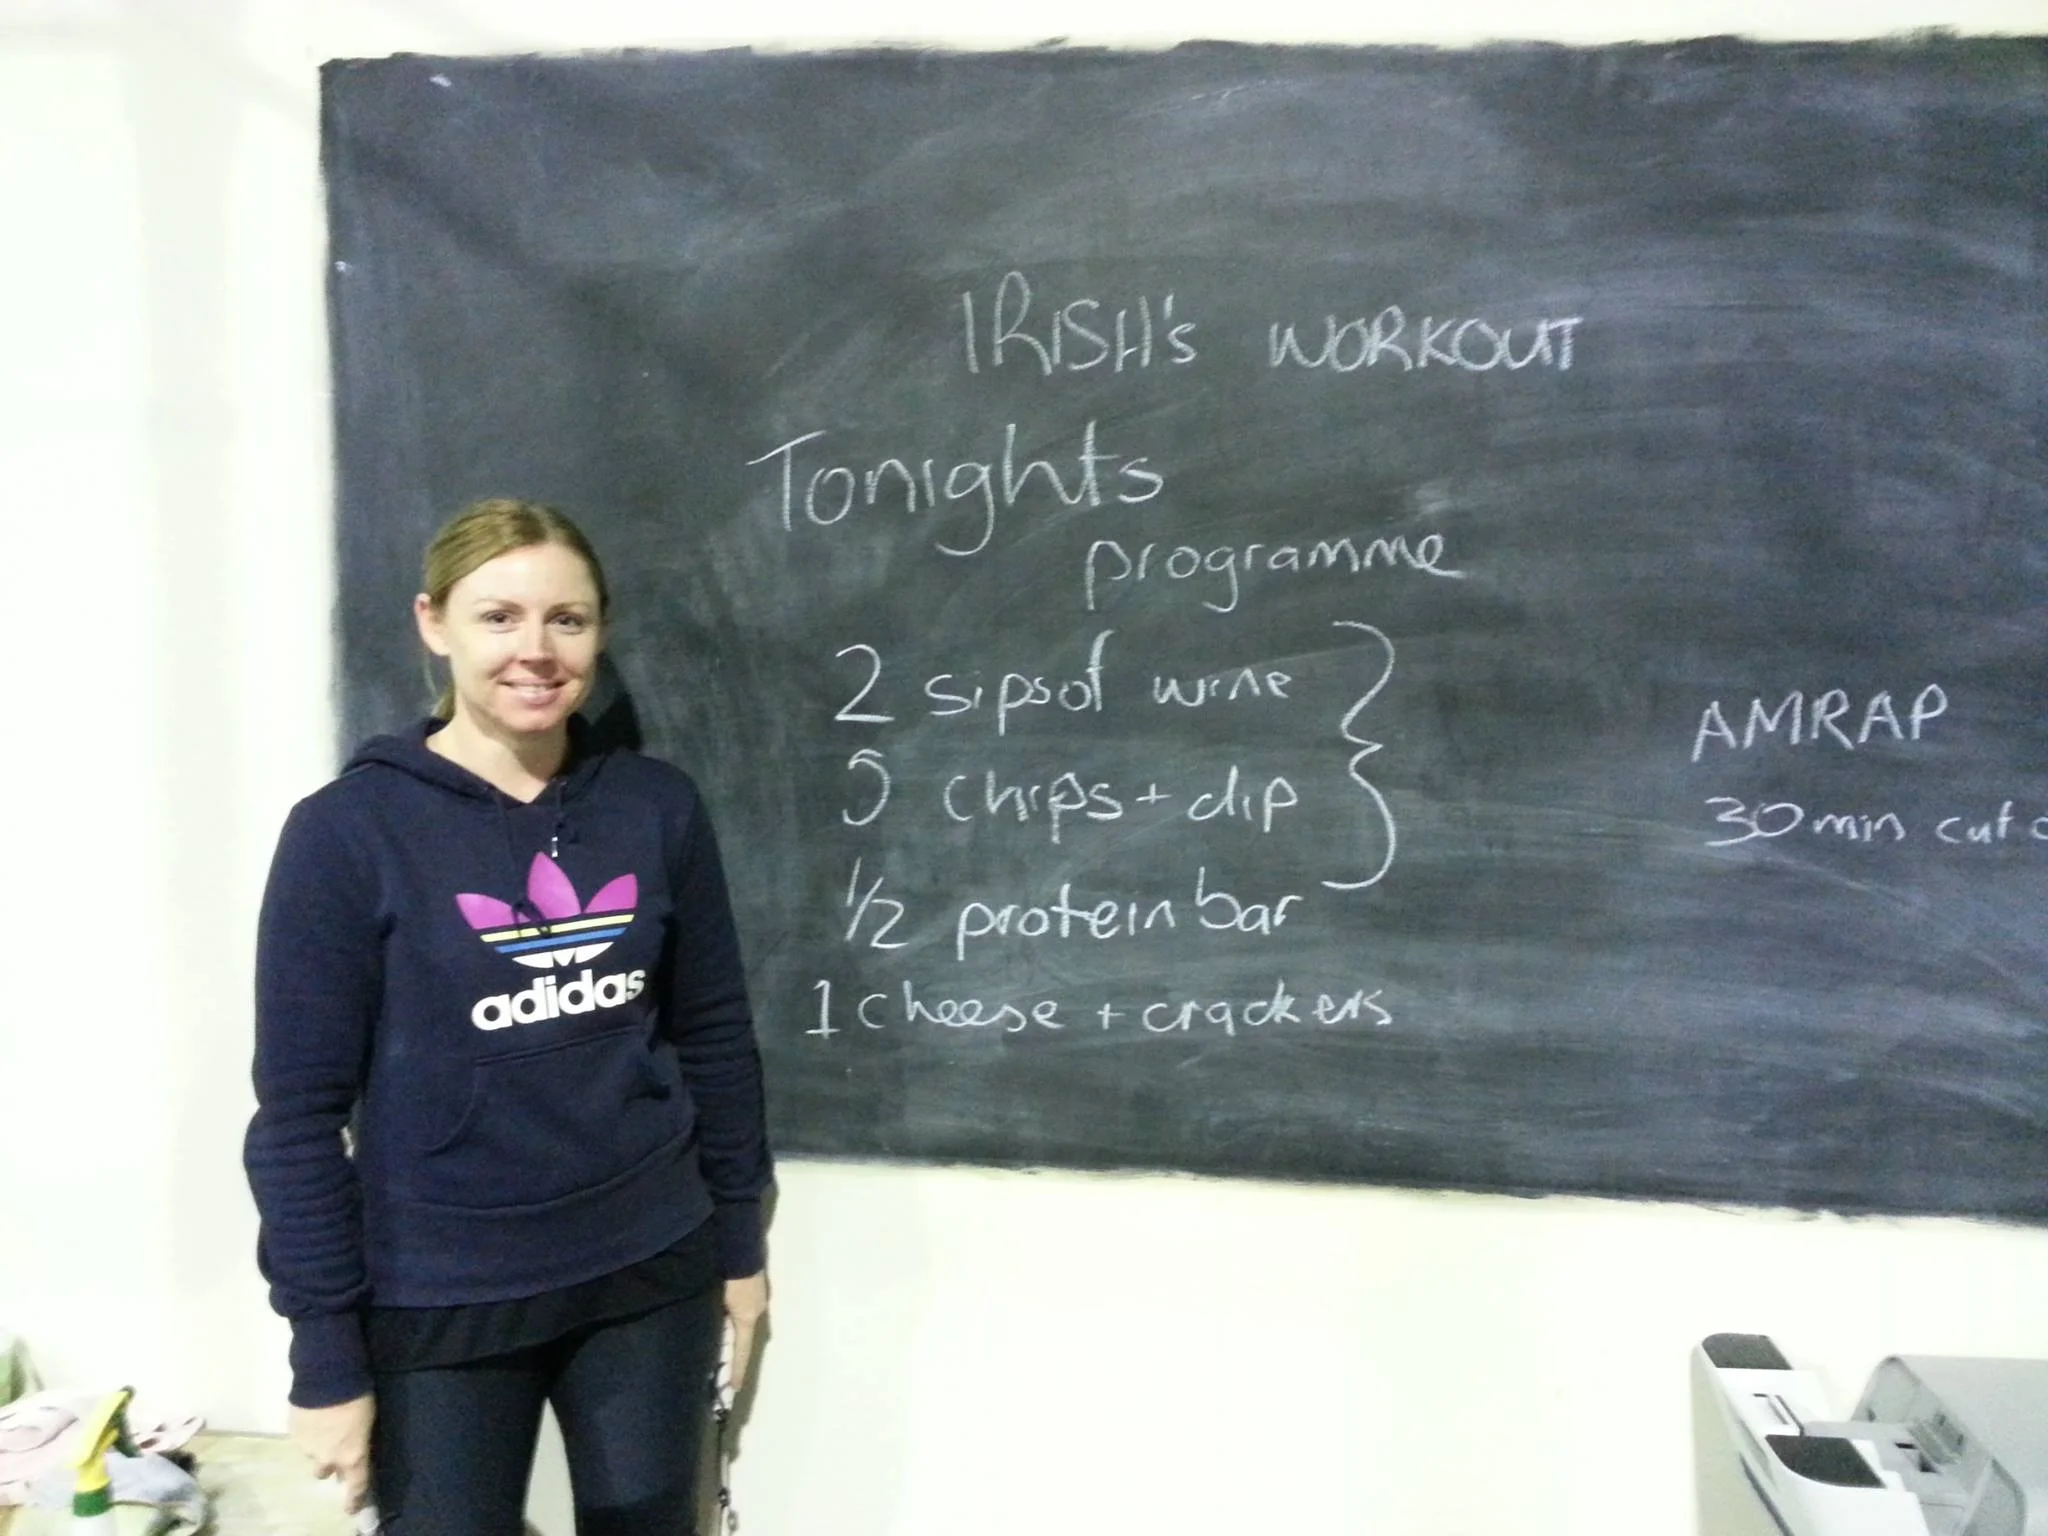 IRISH's WORKOUT
Tonights
programme
2 sips of wine
5 chips + dip
1/2 protein bar
1 cheese + crackers
AMRAP
30 min cut
adidas